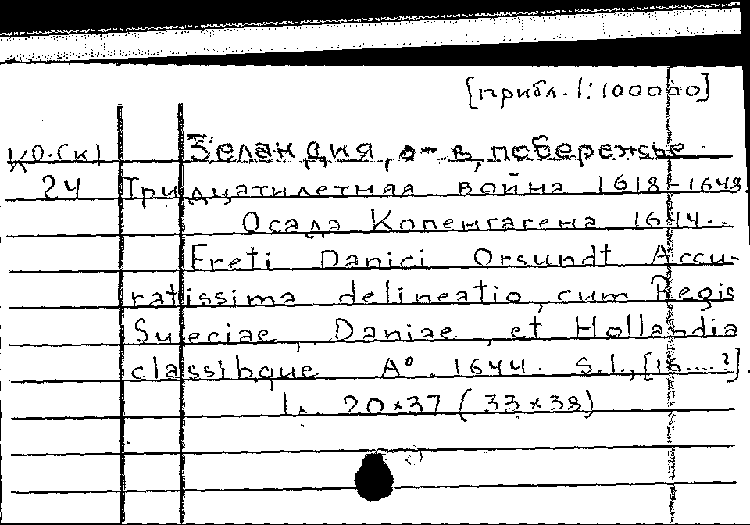 [прибл. 1:100000]
КО.(К) Зеландия, о-в, побережье.
24 Тридцатилетная война 1618-1648.
Осада Копенгагена 1644.
Freti Danici Orsundt Accu-
ratissima delineatio, cum Regis
Sueciae, Daniae, et Hollandia
classibque A° 1644. S.l., [16....?].
1 л. 20×37 (33×38)